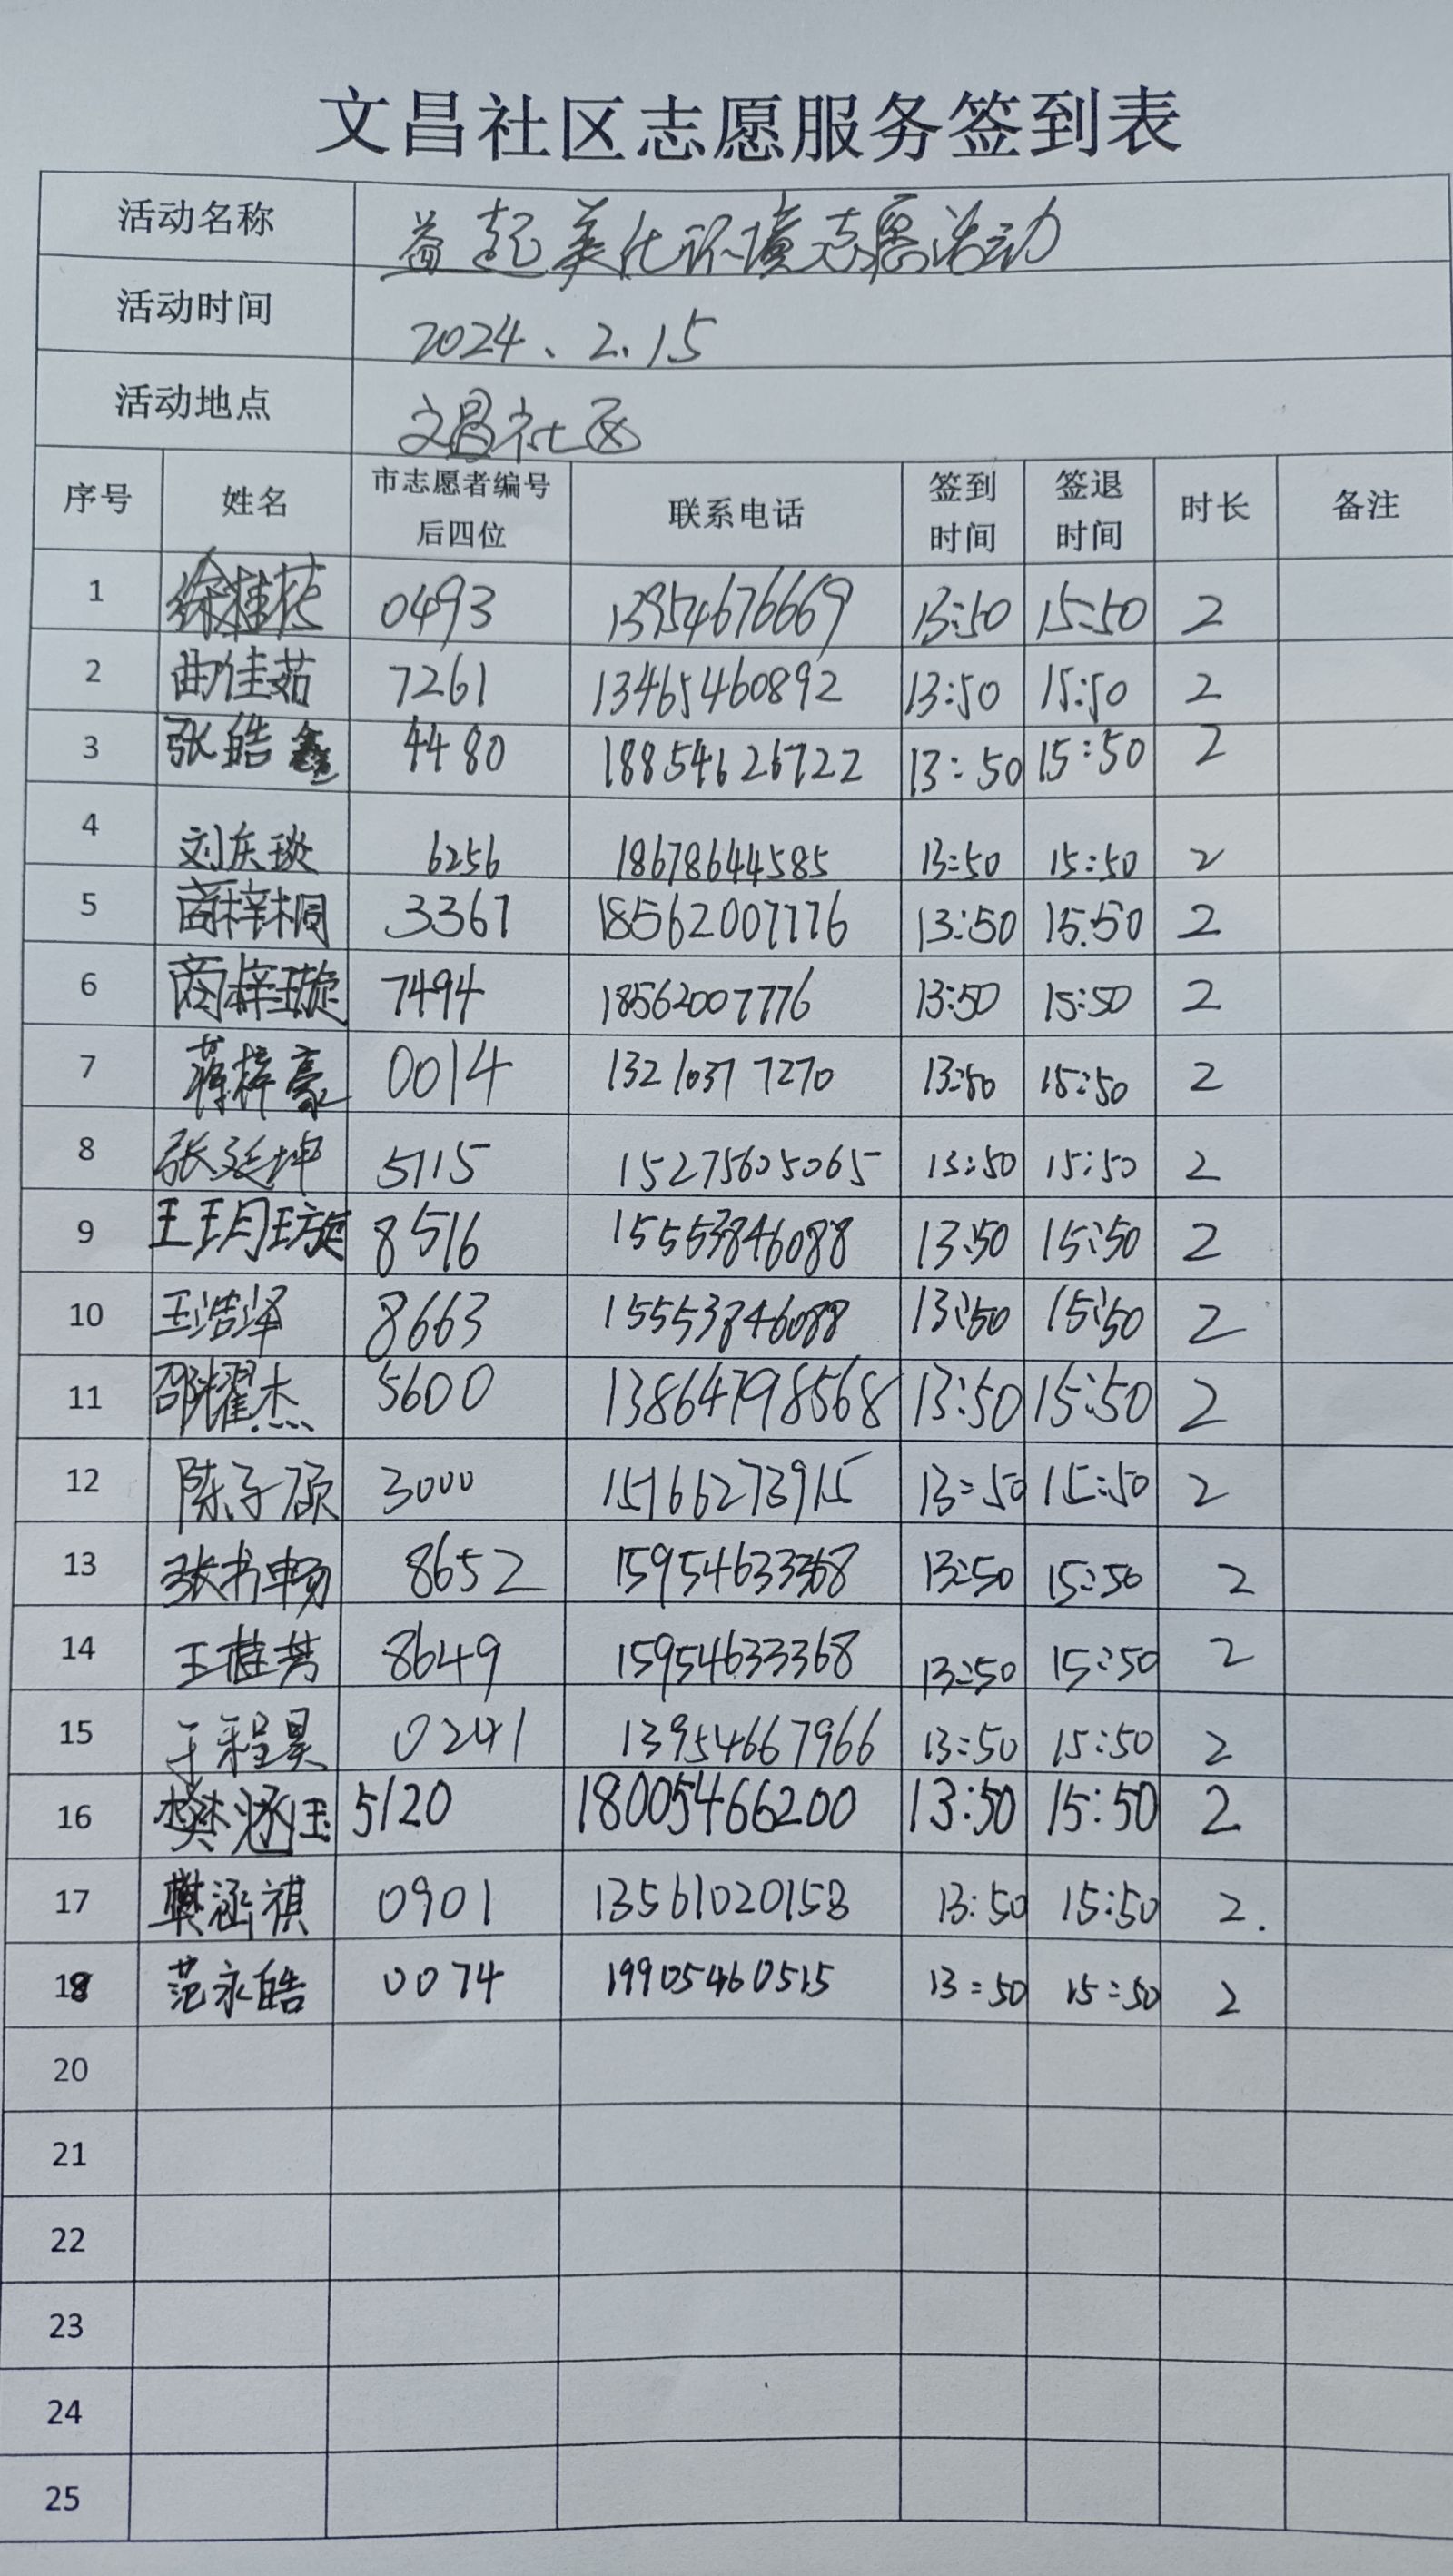 文昌社区志愿服务签到表
活动名称 益起美化环境志愿活动
活动时间 2024、2.15
活动地点 文昌社区
序号 姓名 市志愿者编号后四位 联系电话 签到时间 签退时间 时长 备注
1 徐桂花 0493 13954676669 13:50 15:50 2
2 曲佳茹 7261 13465460892 13:50 15:50 2
3 张皓鑫 4480 18854626722 13:50 15:50 2
4 刘庆琰 6256 18678644585 13:50 15:50 2
5 商梓桐 3367 18562007776 13:50 15:50 2
6 商梓璇 7494 18562007776 13:50 15:50 2
7 蒋梓豪 0014 13210377270 13:50 15:50 2
8 张延坤 5715 15275605065 13:50 15:50 2
9 王玥璇 8516 15553846088 13:50 15:50 2
10 王浩泽 8663 15553846088 13:50 15:50 2
11 邵耀杰 5600 13864798568 13:50 15:50 2
12 陈子硕 3000 15166273915 13:50 15:50 2
13 张书畅 8652 15954633368 13:50 15:50 2
14 王桂芳 8649 15954633368 13:50 15:50 2
15 于程昊 0241 13954667966 13:50 15:50 2
16 樊涵玉 5120 18005466200 13:50 15:50 2
17 樊涵祺 0901 13561020158 13:50 15:50 2.
18 范永皓 0074 19905460515 13:50 15:50 2
20
21
22
23
24
25